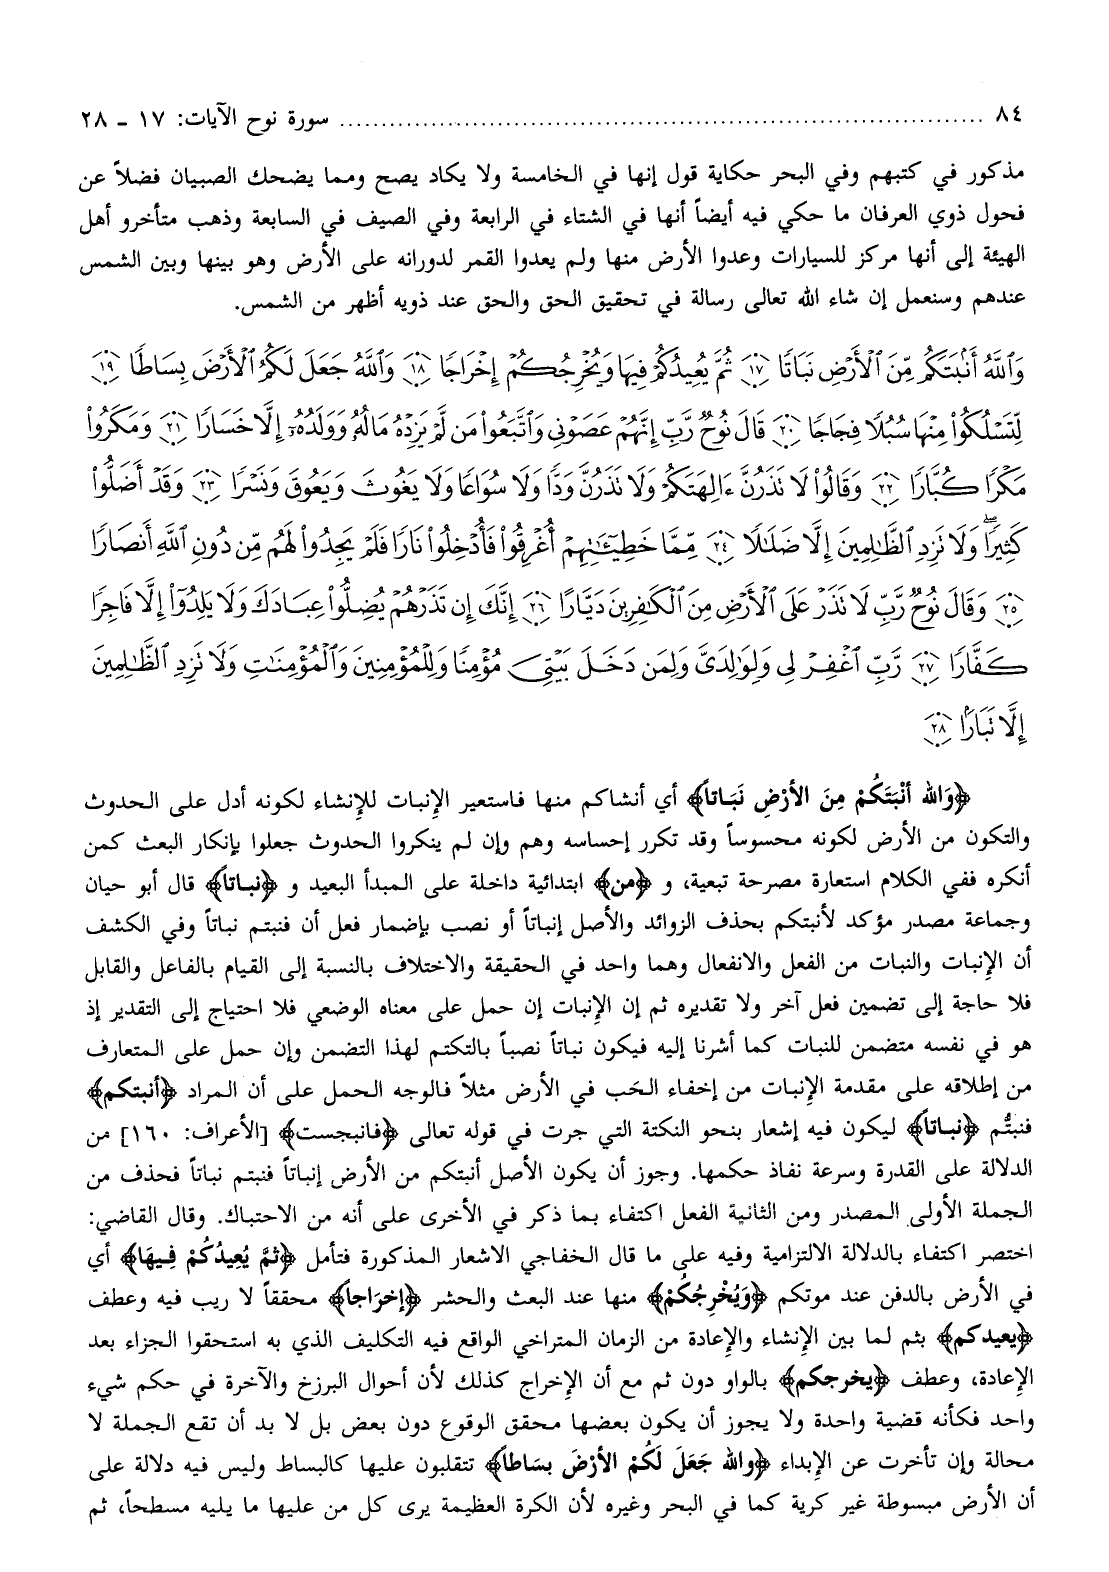 ٨٤ ........................................................................ سورة نوح الآيات: ١٧ ـ ٢٨
مذكور في كتبهم وفي البحر حكاية قول إنها في الخامسة ولا يكاد يصح ومما يضحك الصبيان فضلاً عن
فحول ذوي العرفان ما حكي فيه أيضاً أنها في الشتاء في الرابعة وفي الصيف في السابعة وذهب متأخرو أهل
الهيئة إلى أنها مركز للسيارات وعدوا الأرض منها ولم يعدوا القمر لدورانه على الأرض وهو بينها وبين الشمس
عندهم وسنعمل إن شاء الله تعالى رسالة في تحقيق الحق والحق عند ذويه أظهر من الشمس.
وَٱللَّهُ أَنۢبَتَكُم مِّنَ ٱلْأَرْضِ نَبَاتًا ١٧ ثُمَّ يُعِيدُكُمْ فِيهَا وَيُخْرِجُكُمْ إِخْرَاجًا ١٨ وَٱللَّهُ جَعَلَ لَكُمُ ٱلْأَرْضَ بِسَاطًا ١٩
لِّتَسْلُكُوا۟ مِنْهَا سُبُلًا فِجَاجًا ٢٠ قَالَ نُوحٌ رَّبِّ إِنَّهُمْ عَصَوْنِى وَٱتَّبَعُوا۟ مَن لَّمْ يَزِدْهُ مَالُهُۥ وَوَلَدُهُۥٓ إِلَّا خَسَارًا ٢١ وَمَكَرُوا۟
مَكْرًا كُبَّارًا ٢٢ وَقَالُوا۟ لَا تَذَرُنَّ ءَالِهَتَكُمْ وَلَا تَذَرُنَّ وَدًّا وَلَا سُوَاعًا وَلَا يَغُوثَ وَيَعُوقَ وَنَسْرًا ٢٣ وَقَدْ أَضَلُّوا۟
كَثِيرًا ۖ وَلَا تَزِدِ ٱلظَّٰلِمِينَ إِلَّا ضَلَٰلًا ٢٤ مِّمَّا خَطِيٓـَٰٔتِهِمْ أُغْرِقُوا۟ فَأُدْخِلُوا۟ نَارًا فَلَمْ يَجِدُوا۟ لَهُم مِّن دُونِ ٱللَّهِ أَنصَارًا
٢٥ وَقَالَ نُوحٌ رَّبِّ لَا تَذَرْ عَلَى ٱلْأَرْضِ مِنَ ٱلْكَٰفِرِينَ دَيَّارًا ٢٦ إِنَّكَ إِن تَذَرْهُمْ يُضِلُّوا۟ عِبَادَكَ وَلَا يَلِدُوٓا۟ إِلَّا فَاجِرًا
كَفَّارًا ٢٧ رَّبِّ ٱغْفِرْ لِى وَلِوَٰلِدَىَّ وَلِمَن دَخَلَ بَيْتِىَ مُؤْمِنًا وَلِلْمُؤْمِنِينَ وَٱلْمُؤْمِنَٰتِ وَلَا تَزِدِ ٱلظَّٰلِمِينَ
إِلَّا تَبَارًۢا ٢٨
﴿وَالله أنْبَتَكُمْ مِنَ الأرْضِ نَبَاتاً﴾ أي أنشاكم منها فاستعير الإنبات للإنشاء لكونه أدل على الحدوث
والتكون من الأرض لكونه محسوساً وقد تكرر إحساسه وهم وإن لم ينكروا الحدوث جعلوا بإنكار البعث كمن
أنكره ففي الكلام استعارة مصرحة تبعية، و ﴿من﴾ ابتدائية داخلة على المبدأ البعيد و ﴿نباتاً﴾ قال أبو حيان
وجماعة مصدر مؤكد لأنبتكم بحذف الزوائد والأصل إنباتاً أو نصب بإضمار فعل أن فنبتم نباتاً وفي الكشف
أن الإنبات والنبات من الفعل والانفعال وهما واحد في الحقيقة والاختلاف بالنسبة إلى القيام بالفاعل والقابل
فلا حاجة إلى تضمين فعل آخر ولا تقديره ثم إن الإنبات إن حمل على معناه الوضعي فلا احتياج إلى التقدير إذ
هو في نفسه متضمن للنبات كما أشرنا إليه فيكون نباتاً نصباً بالتكتم لهذا التضمن وإن حمل على المتعارف
من إطلاقه على مقدمة الإنبات من إخفاء الحَب في الأرض مثلاً فالوجه الحمل على أن المراد ﴿أنبتكم﴾
فنبتُّم ﴿نباتاً﴾ ليكون فيه إشعار بنحو النكتة التي جرت في قوله تعالى ﴿فانبجست﴾ [الأعراف: ١٦٠] من
الدلالة على القدرة وسرعة نفاذ حكمها. وجوز أن يكون الأصل أنبتكم من الأرض إنباتاً فنبتم نباتاً فحذف من
الجملة الأولى المصدر ومن الثانية الفعل اكتفاء بما ذكر في الأخرى على أنه من الاحتباك. وقال القاضي:
اختصر اكتفاء بالدلالة الالتزامية وفيه على ما قال الخفاجي الاشعار المذكورة فتأمل ﴿ثمَّ يُعِيدُكُمْ فِيهَا﴾ أي
في الأرض بالدفن عند موتكم ﴿وَيُخْرِجُكُمْ﴾ منها عند البعث والحشر ﴿إخرَاجاً﴾ محققاً لا ريب فيه وعطف
﴿يعيدكم﴾ بثم لما بين الإنشاء والإعادة من الزمان المتراخي الواقع فيه التكليف الذي به استحقوا الجزاء بعد
الإعادة، وعطف ﴿يخرجكم﴾ بالواو دون ثم مع أن الإخراج كذلك لأن أحوال البرزخ والآخرة في حكم شيء
واحد فكأنه قضية واحدة ولا يجوز أن يكون بعضها محقق الوقوع دون بعض بل لا بد أن تقع الجملة لا
محالة وإن تأخرت عن الإبداء ﴿والله جَعَلَ لَكُمْ الأرْضَ بسَاطاً﴾ تتقلبون عليها كالبساط وليس فيه دلالة على
أن الأرض مبسوطة غير كرية كما في البحر وغيره لأن الكرة العظيمة يرى كل من عليها ما يليه مسطحاً، ثم